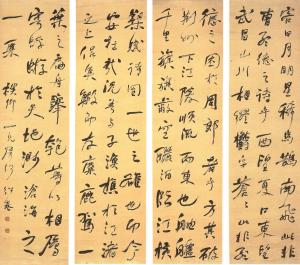 客曰月明星稀烏鵲南飛此非曹
孟德之詩乎西望夏口東望
武昌山川相繆鬱乎蒼蒼此非孟
德之困於周郎者乎方其破荊
州下江陵順流而東也舳艫
千里旌旗蔽空釃酒臨江橫
槊賦詩固一世之雄也而今
安在哉況吾與子漁樵於江渚
之上侶魚蝦而友麋鹿駕一
葉之扁舟舉匏樽以相屬
寄蜉蝣於天地渺滄海之
一粟